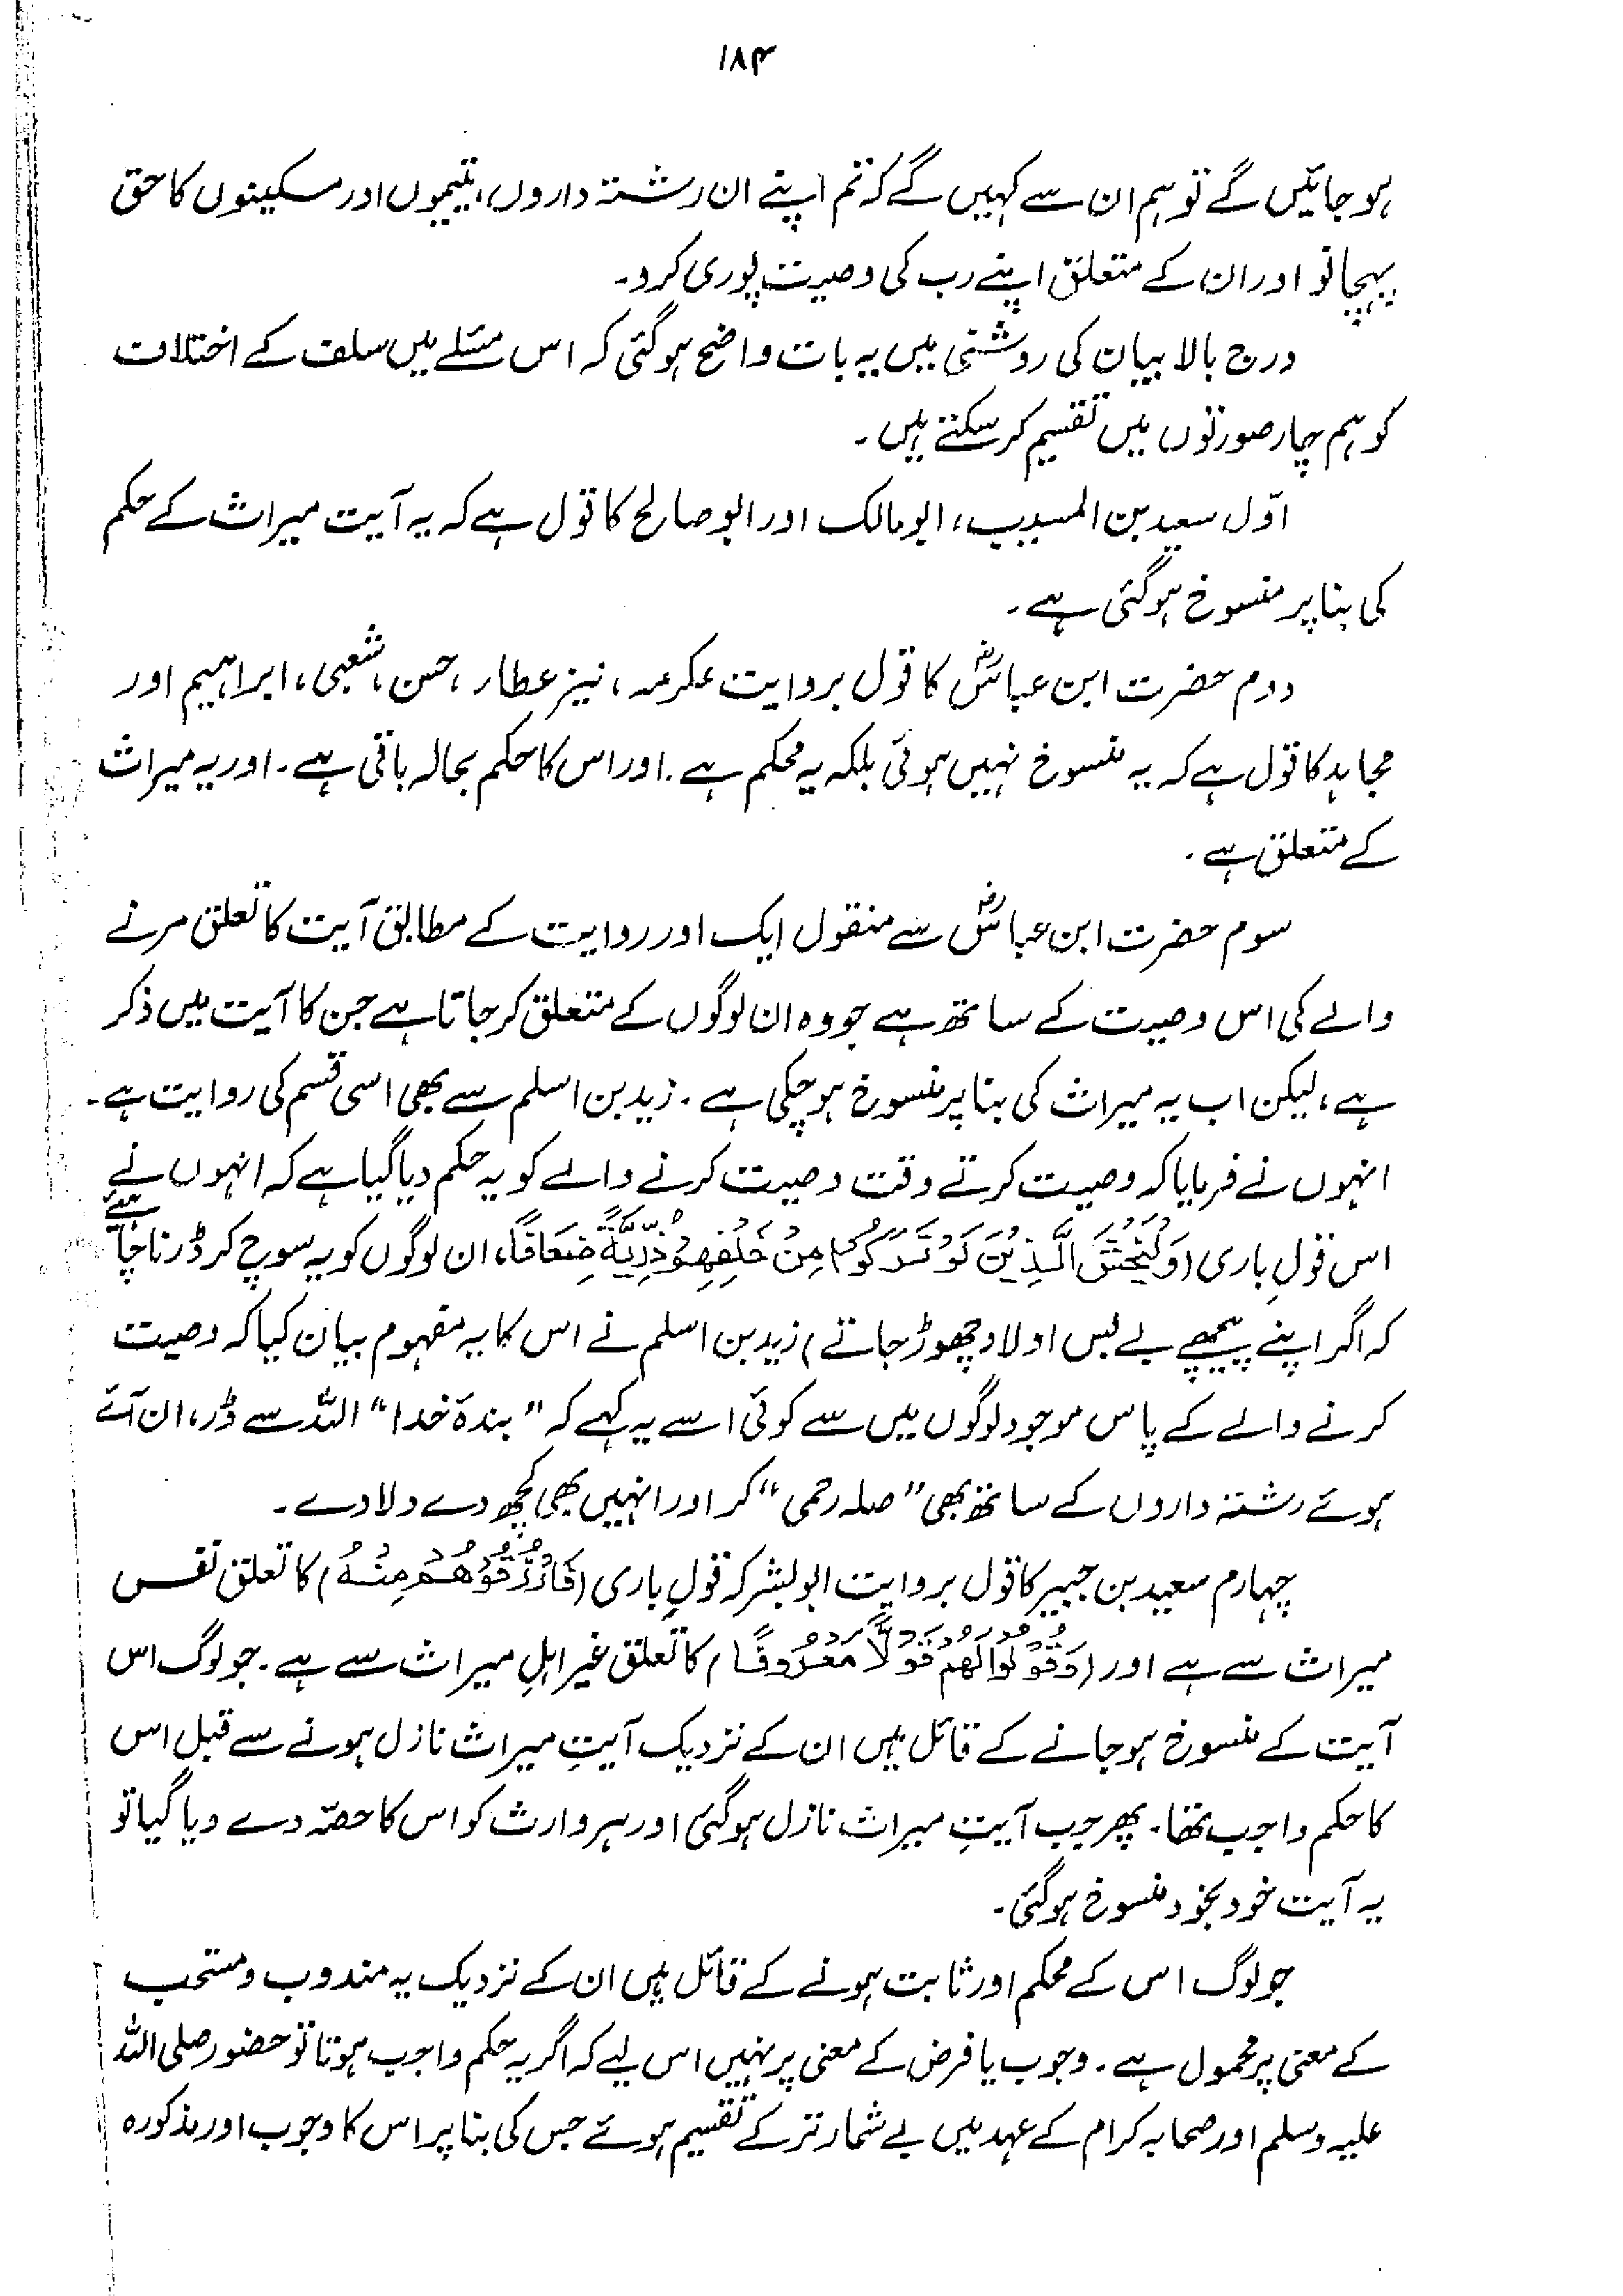 ۱۸۴
ہو جائیں گے تو ہم ان سے کہیں گے کہ تم اپنے ان رشتہ داروں، یتیموں اور مسکینوں کا حق
پہچانو اور ان کے متعلق اپنے رب کی وصیت پوری کرو۔
درج بالا بیان کی روشنی میں یہ بات واضح ہو گئی کہ اس مسئلے میں سلف کے اختلاف
کو ہم چار صورتوں میں تقسیم کر سکتے ہیں۔
اوّل سعید بن المسیب، ابو مالک اور ابو صالح کا قول ہے کہ یہ آیت میراث کے حکم
کی بنا پر منسوخ ہو گئی ہے۔
دوم حضرت ابن عباسؓ کا قول بروایت عکرمہ، نیز عطار، حسن، شعبی، ابراہیم اور
مجاہد کا قول ہے کہ یہ منسوخ نہیں ہوئی بلکہ یہ محکم ہے۔ اور اس کا حکم بحالہ باقی ہے۔ اور یہ میراث
کے متعلق ہے۔
سوم حضرت ابن عباسؓ سے منقول ایک اور روایت کے مطابق آیت کا تعلق مرنے
والے کی اس وصیت کے ساتھ ہے جو وہ ان لوگوں کے متعلق کر جاتا ہے جن کا آیت میں ذکر
ہے، لیکن اب یہ میراث کی بنا پر منسوخ ہو چکی ہے۔ زید بن اسلم سے بھی اسی قسم کی روایت ہے۔
انہوں نے فرمایا کہ وصیت کرتے وقت وصیت کرنے والے کو یہ حکم دیا گیا ہے کہ انہوں نے
اس قولِ باری (وَلْيَخْشَ الَّذِيْنَ لَوْ تَرَكُوْا مِنْ خَلْفِهِمْ ذُرِّيَّةً ضِعَافًا، ان لوگوں کو یہ سوچ کر ڈرنا چاہیئے
کہ اگر اپنے پیچھے بے بس اولاد چھوڑ جاتے) زید بن اسلم نے اس کا یہ مفہوم بیان کیا کہ وصیت
کرنے والے کے پاس موجود لوگوں میں سے کوئی اسے یہ کہے کہ "بندۂ خدا" اللہ سے ڈر، ان آئے
ہوئے رشتہ داروں کے ساتھ بھی "صلہ رحمی" کر اور انہیں بھی کچھ دے دلا دے۔
چہارم سعید بن جبیر کا قول بروایت ابو بشر کہ قولِ باری (فَارْزُقُوْهُمْ مِنْهُ) کا تعلق نفس
میراث سے ہے اور (وَقُوْلُوْا لَهُمْ قَوْلًا مَّعْرُوْفًا) کا تعلق غیر اہلِ میراث سے ہے۔ جو لوگ اس
آیت کے منسوخ ہو جانے کے قائل ہیں ان کے نزدیک آیتِ میراث نازل ہونے سے قبل اس
کا حکم واجب تھا۔ پھر جب آیتِ میراث نازل ہو گئی اور ہر وارث کو اس کا حصّہ دے دیا گیا تو
یہ آیت خود بخود منسوخ ہو گئی۔
جو لوگ اس کے محکم اور ثابت ہونے کے قائل ہیں ان کے نزدیک یہ مندوب و مستحب
کے معنی پر محمول ہے۔ وجوب یا فرض کے معنی پر نہیں اس لیے کہ اگر یہ حکم واجب ہوتا تو حضور صلی اللہ
علیہ وسلم اور صحابہ کرام کے عہد میں بے شمار ترکے تقسیم ہوئے جس کی بنا پر اس کا وجوب اور مذکورہ